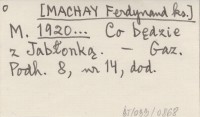 [MACHAY Ferdynand ks.]
M. 1920... Co będzie
z Jabłonką. — Gaz.
Podh. 8, nr 14, dod.